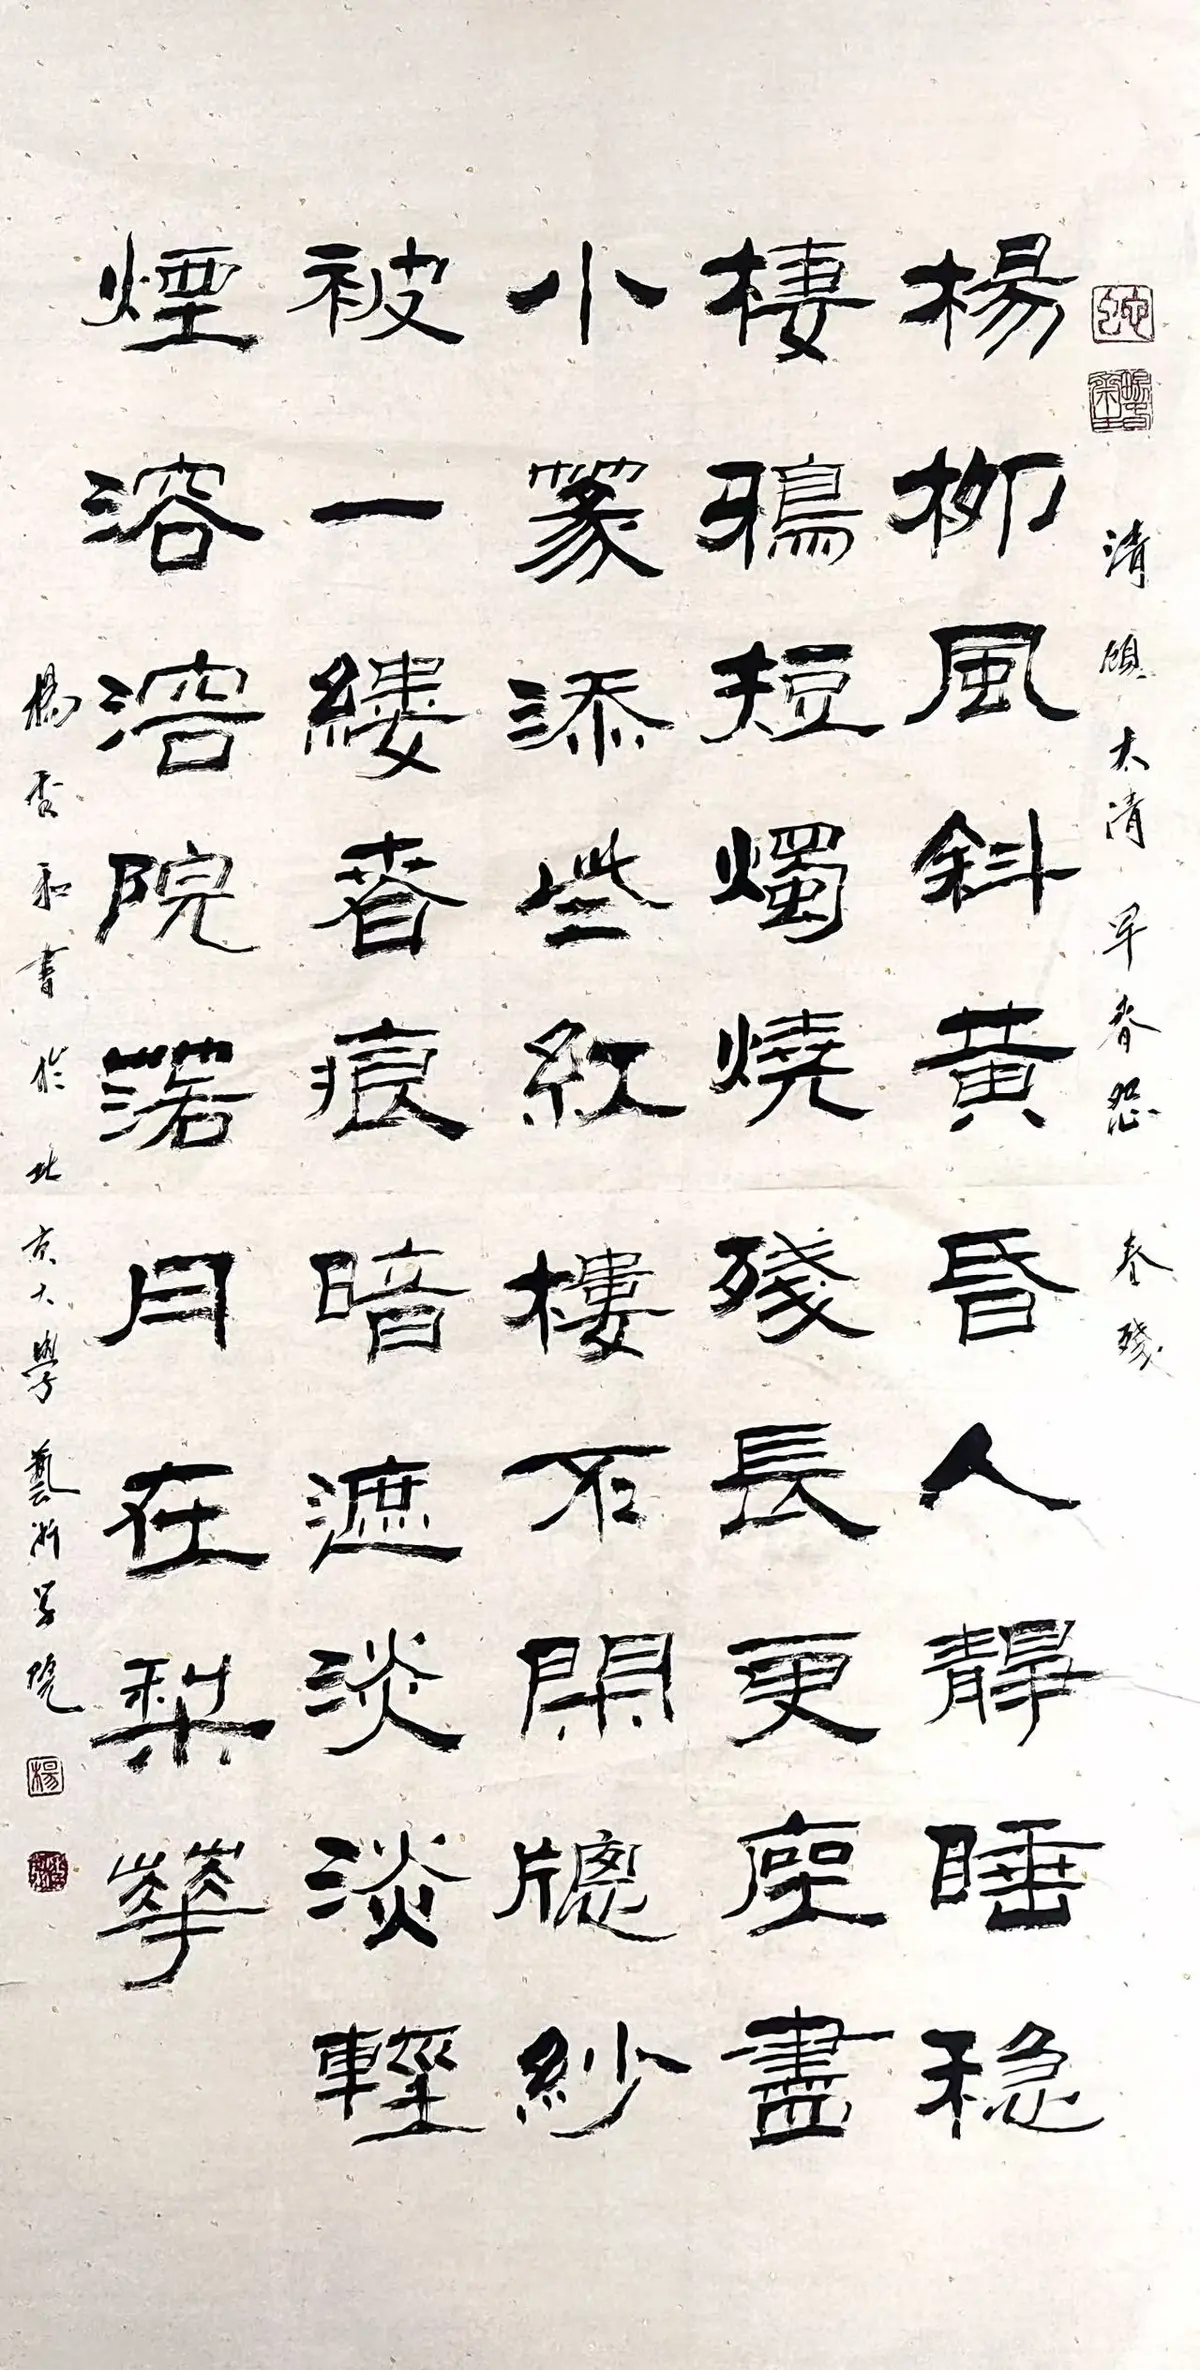 清 顧太清 早春怨 春殘
楊柳風斜黃昏人靜睡穩
棲鴉短燭燒殘長更座盡
小篆添些紅樓不閉牕紗
被一縷春痕暗遮淡淡輕
煙溶溶院落月在梨華
楊和書於北京大學藝術学院
楊